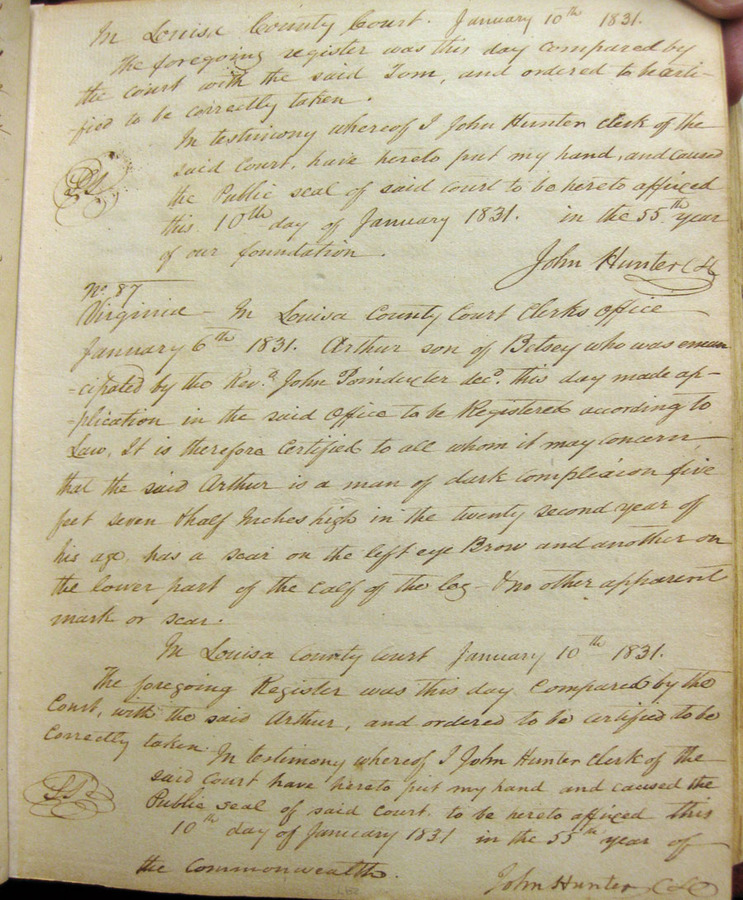 In Louisa County Court. January 10th 1831.
The foregoing register was this day compared by
the court with the said Tom, and ordered to be certi-
-fied to be correctly taken.
In testimony whereof I John Hunter clerk of the
said Court, have hereto put my hand, and caused
the Public seal of said court to be hereto affixed
this 10th day of January 1831. in the 55th year
of our foundation.
John Hunter
No. 87
Virginia - In Louisa County Court Clerks office
January 6th 1831. Arthur son of Betsey who was eman
-cipated by the Revd. John Poindexter decd. this day made ap-
-plication in the said Office to be Registered according to
Law, It is therefore Certified to all whom it may concern
that the said Arthur is a man of dark complexion five
feet seven & half Inches high in the twenty second year of
his age, has a scar on the left eye Brow and another on
the lower part of the calf of the leg - & no other apparent
mark or scar.
In Louisa County Court January 10th 1831.
The foregoing Register was this day Compared by the
Court, with the said Arthur, and ordered to be certified to be
Correctly taken. In testimony whereof I John Hunter Clerk of the
said Court have hereto put my hand and caused the
Public seal of said court to be hereto affixed this
10th day of January 1831 in the 55th year of
the Commonwealth.
John Hunter